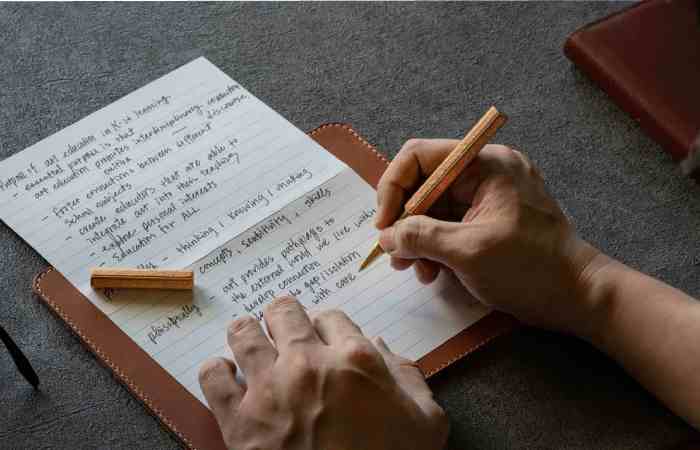 Purpose of art education in K-12 learning
- essential purpose is that
art education provides interdisciplinary
- foster connections between different
school subjects
- create educators that are able to
integrate art into their teaching
- explore personal interests
- Education for ALL
- thinking / knowing / making
concepts, sensitivity, skills
philosophically
- art provides pathways to
the external world we live within
- develop connection
the gap/isolation
with care